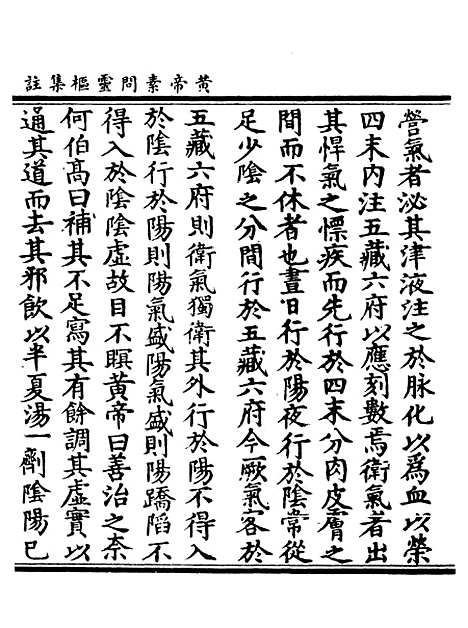 黃帝素問靈樞集註
營氣者泌其津液注之於脉化以爲血以榮
四末内注五藏六府以應刻數焉衛氣者出
其悍氣之慓疾而先行於四末分肉皮膚之
間而不休者也晝日行於陽夜行於陰常從
足少陰之分間行於五藏六府今厥氣客於
五藏六府則衛氣獨衛其外行於陽不得入
於陰行於陽則陽氣盛陽氣盛則陽蹻陷不
得入於陰陰虛故目不瞑黃帝曰善治之奈
何伯高曰補其不足寫其有餘調其虛實以
通其道而去其邪飲以半夏湯一劑陰陽已